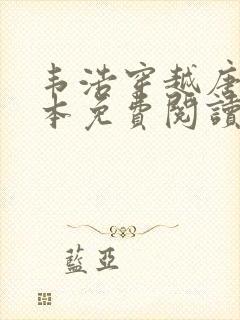 韦浩穿越唐
本免費閱讀
藍亞